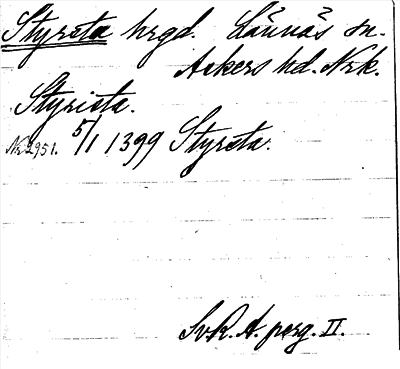 Styrsta hrgd. Lännäs sn.
Askers hd. Nrk.
Styrista.
Nr 2951. 5/1 1399 Styrsta.
SvR. A. perg. II.